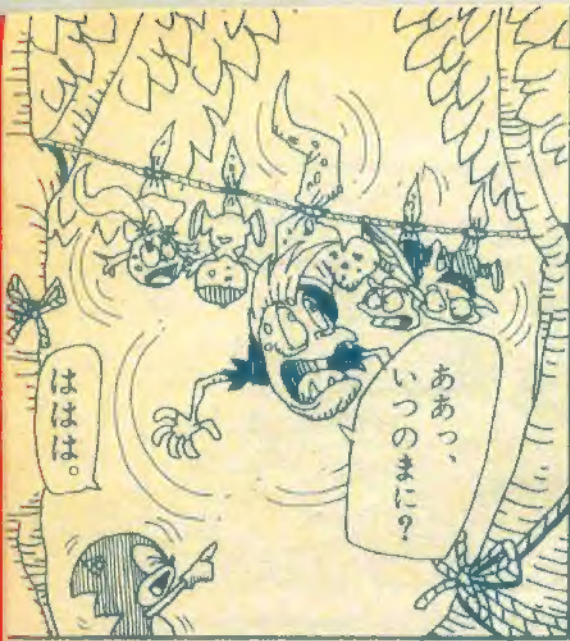 ああっ、
いつのまに?
ははは。